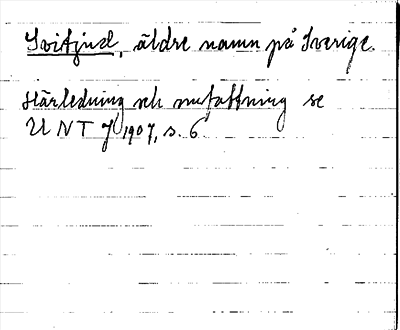 Svitjud, äldre namn på Sverige.
Härledning och omfattning se
UNT 7/1 1907, s. 6